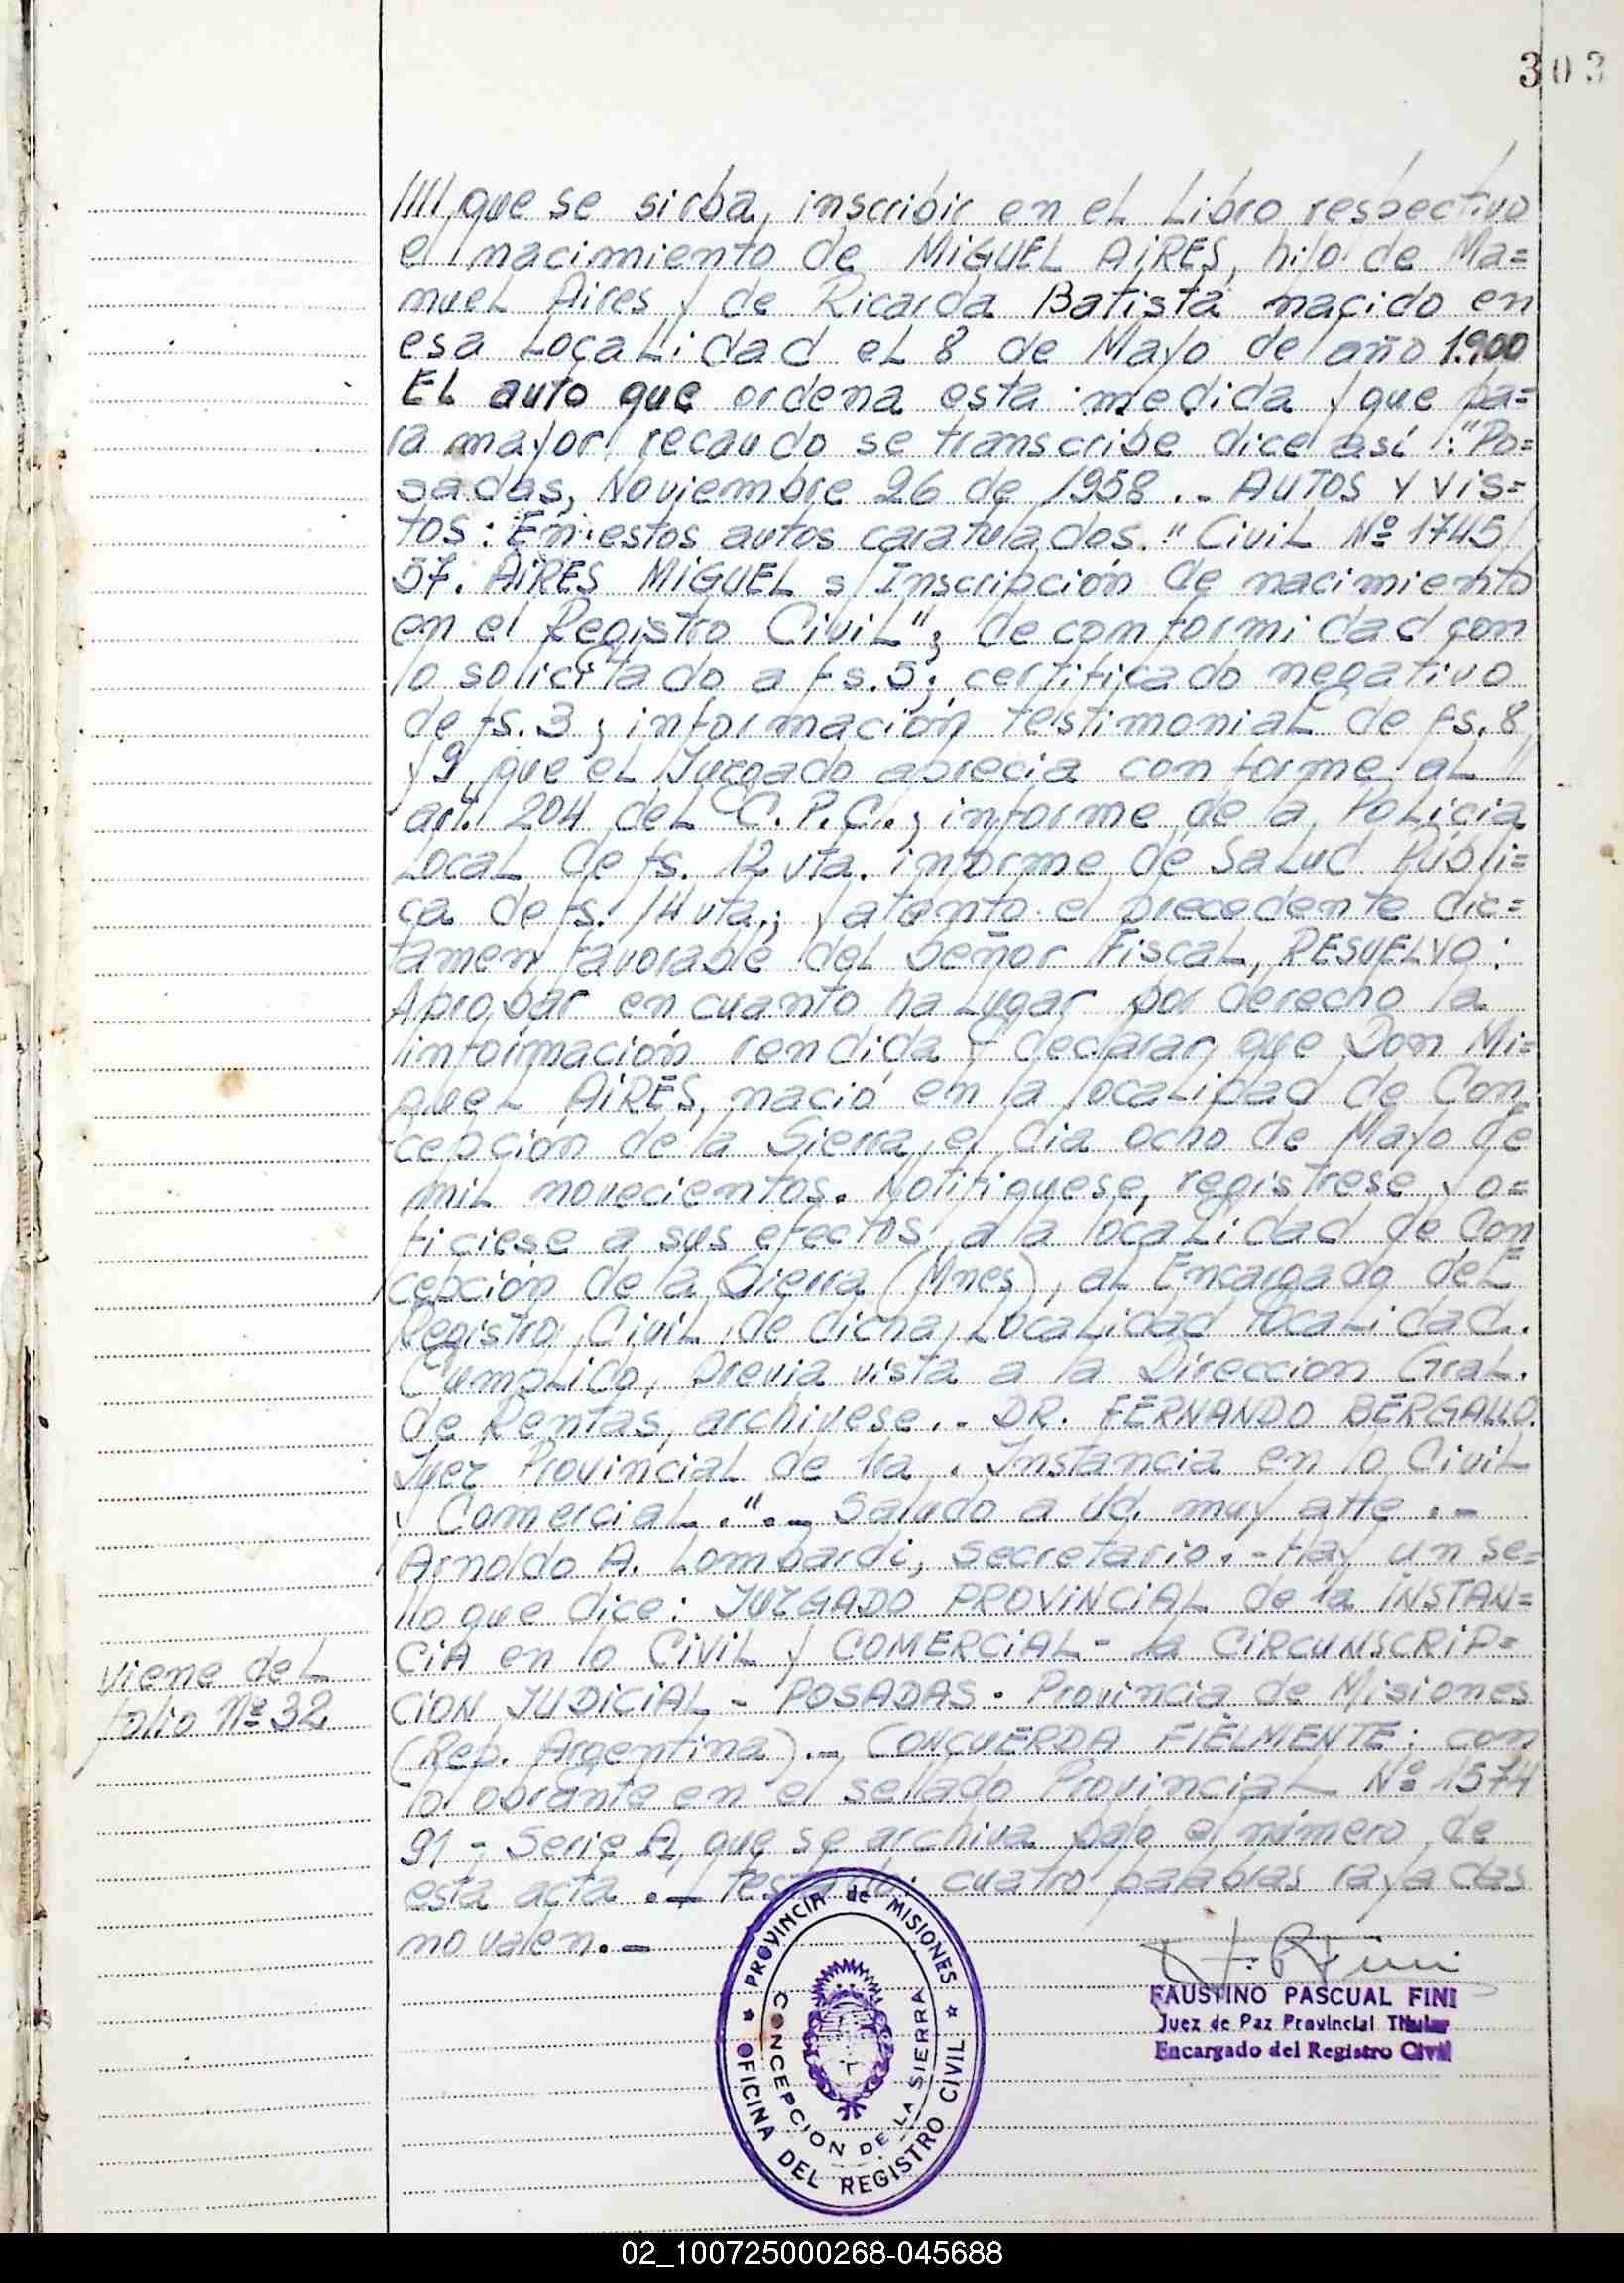 303
//// que se sirba, inscribir en el Libro respectivo
el nacimiento de MIGUEL AIRES, hijo de Ma=
nuel Aires y de Ricarda Batista nacido en
esa Localidad el 8 de Mayo de año 1.900
El auto que ordena esta medida y que pa=
ra mayor recaudo se transcribe dice así : "Po=
sadas, Noviembre 26 de 1958 .- AUTOS Y VIS=
TOS : En estos autos caratulados. " Civil Nº 1745/
57. AIRES MIGUEL s/ Inscripción de nacimiento
en el Registro Civil" ; de conformidad con
lo solicitado a fs. 5 ; certificado negativo
de fs. 3 ; información testimonial de fs. 8
y 9 que el Juzgado aprecia conforme al //
art. 204 del C. P. C. ; informe de la Policia
Local de fs. 12 vta. informe de Salud Publi=
ca de fs. 14 vta ; y atento el precedente dic=
tamen favorable del Señor Fiscal, RESUELVO :
Aprobar en cuanto ha lugar por derecho la
información rendida y declarar que Don Mi=
guel AIRES, nació en la localidad de Con
cepción de la Sierra, el dia ocho de Mayo de
mil novecientos. Notifiquese, registrese y o=
ficiese a sus efectos a la localidad de Con
cepción de la Sierra (Mnes), al Encargado del
Registro Civil de dicha Localidad localidad.
Cumplido, previa vista a la Direccion Gral.
de Rentas, archivese .- DR. FERNANDO BERGALLO.
Juez Provincial de 1ra . Instancia en lo Civil
y Comercial . " .- Saludo a Ud. muy atte .-
Arnoldo A. Lombardi, secretario. - Hay un se=
llo que dice : JUZGADO PROVINCIAL de 1a INSTAN=
CIA en lo CIVIL y COMERCIAL - 1a CIRCUNSCRIP=
CION JUDICIAL - POSADAS - Provincia de Misiones
(Rep. Argentina) .- CONCUERDA FIELMENTE : con
lo obrante en el sellado Provincial Nº 1574
91 - Serie A, que se archiva bajo el número de
esta acta .- Testado : cuatro palabras rayadas
no valen . -
viene del
folio Nº 32
PROVINCIA de MISIONES
OFICINA DEL REGISTRO CIVIL
CONCEPCION DE LA SIERRA
FAUSTINO PASCUAL FINI
Juez de Paz Provincial Titular
Encargado del Registro Civil
02_100725000268-045688